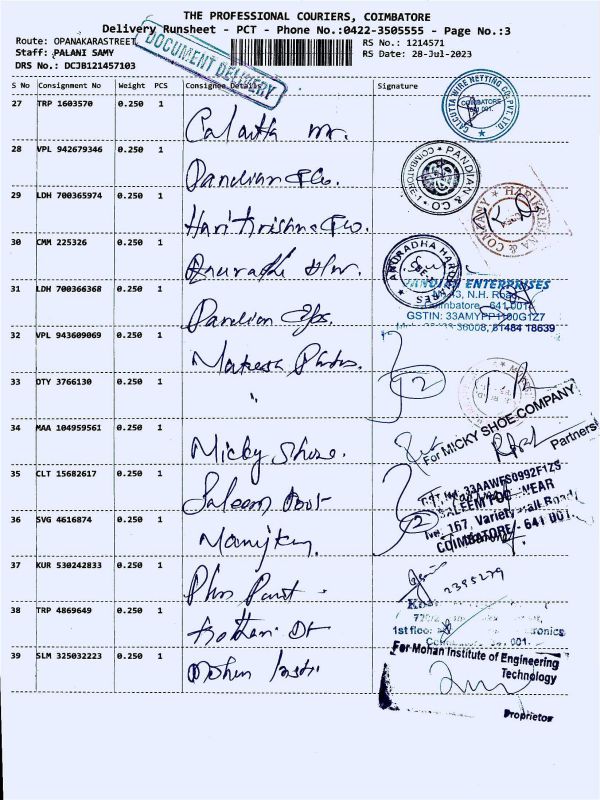 THE PROFESSIONAL COURIERS, COIMBATORE
Delivery Runsheet - PCT - Phone No.:0422-3505555 - Page No.:3
Route: OPANAKARASTREET
RS No.: 1214571
Staff: PALANI SAMY
RS Date: 28-Jul-2023
DRS No.: DCJB121457103
DOCUMENT DELIVERY
S No Consignment No Weight PCS Consignee Details Signature
27 TRP 1603570 0.250 1
CALCUTTA WIRE NETTING CO. PVT. LTD
COIMBATORE
641 001.
28 VPL 942679346 0.250 1 Pandian & Co.
PANDIAN & CO
COIMBATORE-1
29 LDH 700365974 0.250 1 Hari Krishna & Co.
HARIKRISHNA & COMPANY
30 CMM 225326 0.250 1 Anuradha Hw.
ANURADHA HARDWARES
CBE-1
31 LDH 700366368 0.250 1 Pandian
PANDIAN ENTERPRISES
43, N.H. Road,
Coimbatore - 641 001
36008, 81484 18639
32 VPL 943609069 0.250 1
33 DTY 3766130 0.250 1 "
2
34 MAA 104959561 0.250 1 Micky Shoe.
For MICKY SHOE COMPANY
Partners
35 CLT 15682617 0.250 1 Saleem Foot
33AAWFS0992F1Z5
SALEEM FOOT WEAR
167, Variety Hall Road
COIMBATORE - 641 001.
36 SVG 4616874 0.250 1
2
37 KUR 530242833 0.250 1
2395279
38 TRP 4869649 0.250 1 Kothari
1st floor
001.
39 SLM 325032223 0.250 1 Mohan
For Mohan Institute of Engineering
Technology
Proprietor